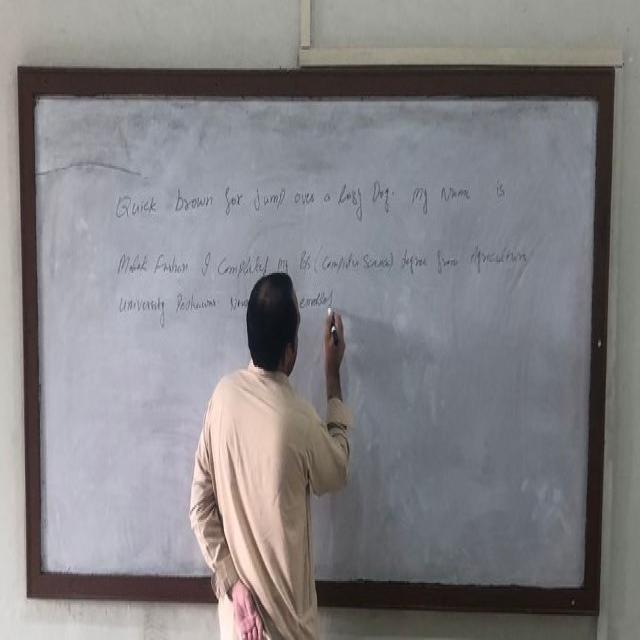 Quick brown fox Jump over a lazy Dog. My Name is
I Completed my BS (Computer Science) degree from Agriculture
University Peshawar enrolled